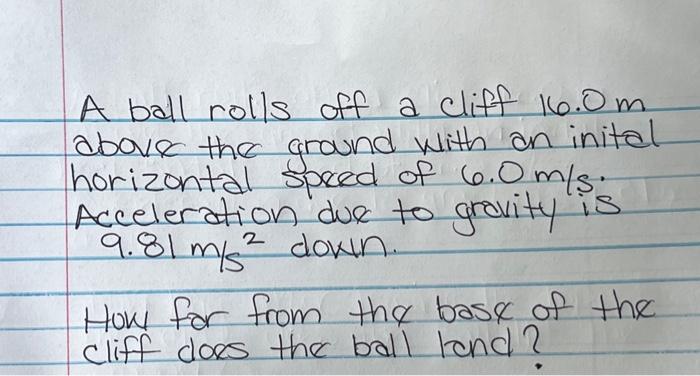 A ball rolls off a cliff 16.0m
above the ground with an inital
horizontal speed of 6.0 m/s.
Acceleration due to gravity is
9.81 m/s² down.
How far from the base of the
cliff does the ball land?